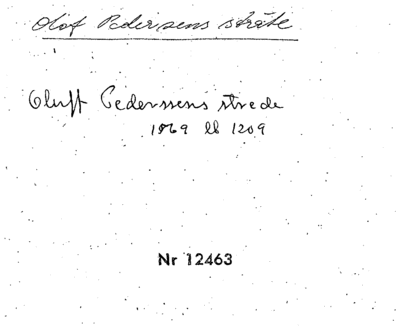 Olof Pedersens stræte
Oluff Pederssens strede
1569 ll 1209
Nr 12463